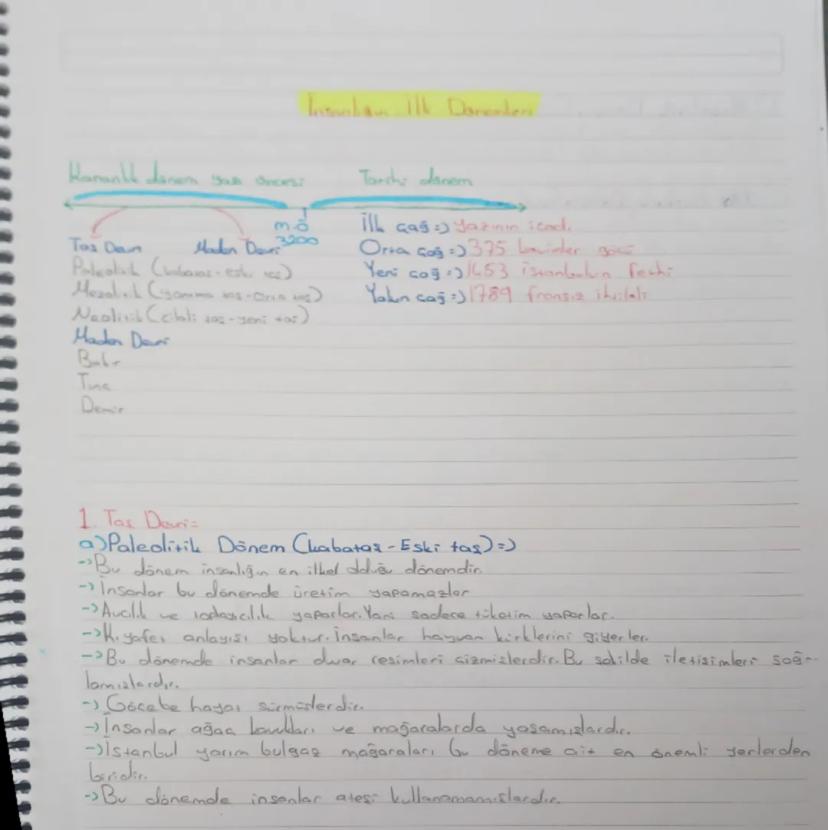 İnsanlığın İlk Dönemleri
Karanlık dönem yazı öncesi Tarihi dönem
m.ö
3200
İlk çağ=) yazının icadı
Taş Devri Maden Devri
Orta çağ=) 375 kavimler göçü
Paleolitik (kabataş-eski taş)
Yeni çağ=) 1453 İstanbulun fethi
Mezolitik (yontma taş-orta taş)
Yakın çağ=) 1789 fransız ihtilali
Neolitik (cilalı taş-yeni taş)
Maden Devri
Bakır
Tunç
Demir
1. Taş Devri=
a) Paleolitik Dönem (kabataş-Eski taş)=)
-> Bu dönem insanlığın en ilkel olduğu dönemdir.
-> İnsanlar bu dönemde üretim yapamazlar
-> Avcılık ve toplayıcılık yaparlar. Yani sadece tüketim yaparlar.
-> Kıyafet anlayışı yoktur. İnsanlar hayvan kürklerini giyerler.
-> Bu dönemde insanlar duvar resimleri çizmişlerdir. Bu şekilde iletişimleri sağ-
lamışlardır.
-> Göçebe hayat sürmüşlerdir.
-> İnsanlar ağaç kavukları ve mağaralarda yaşamışlardır.
-> İstanbul yarım bulgaz mağaraları bu döneme ait en önemli yerlerden
biridir.
-> Bu dönemde insanlar ateşi kullanamamışlardır.